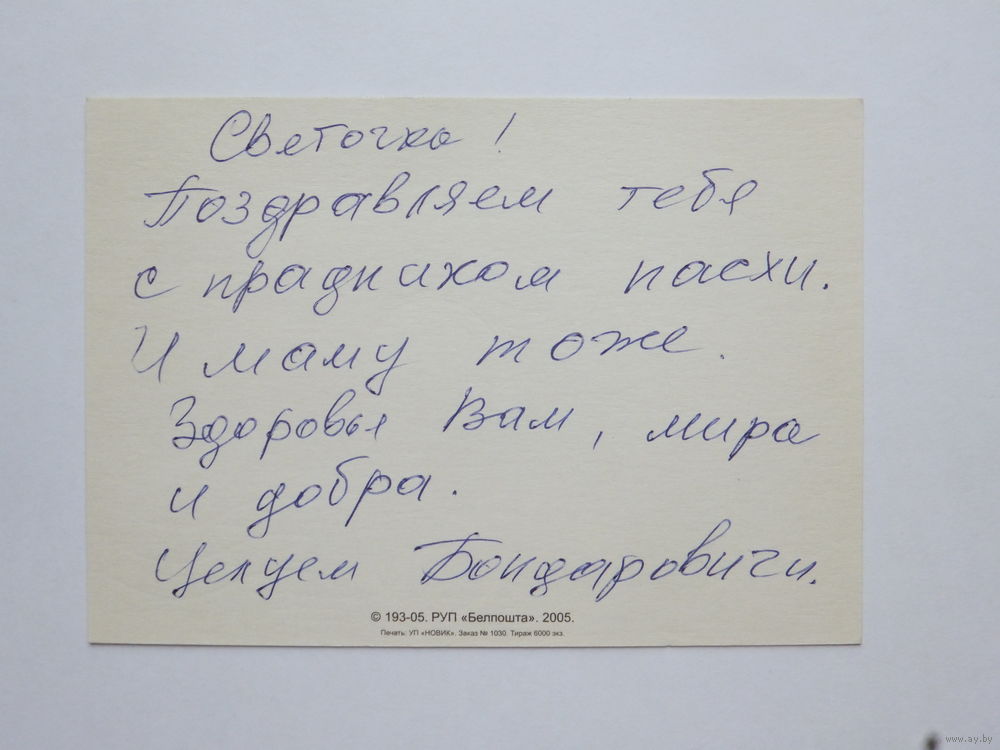 Светочка!
Поздравляем тебя
с прадником пасхи.
И маму тоже.
Здоровья Вам, мира
и добра.
Целуем Бондаровичи.
© 193-05. РУП «Белпошта». 2005.
Печать: УП «НОВИК». Заказ № 1030. Тираж 6000 экз.
www.ay.by